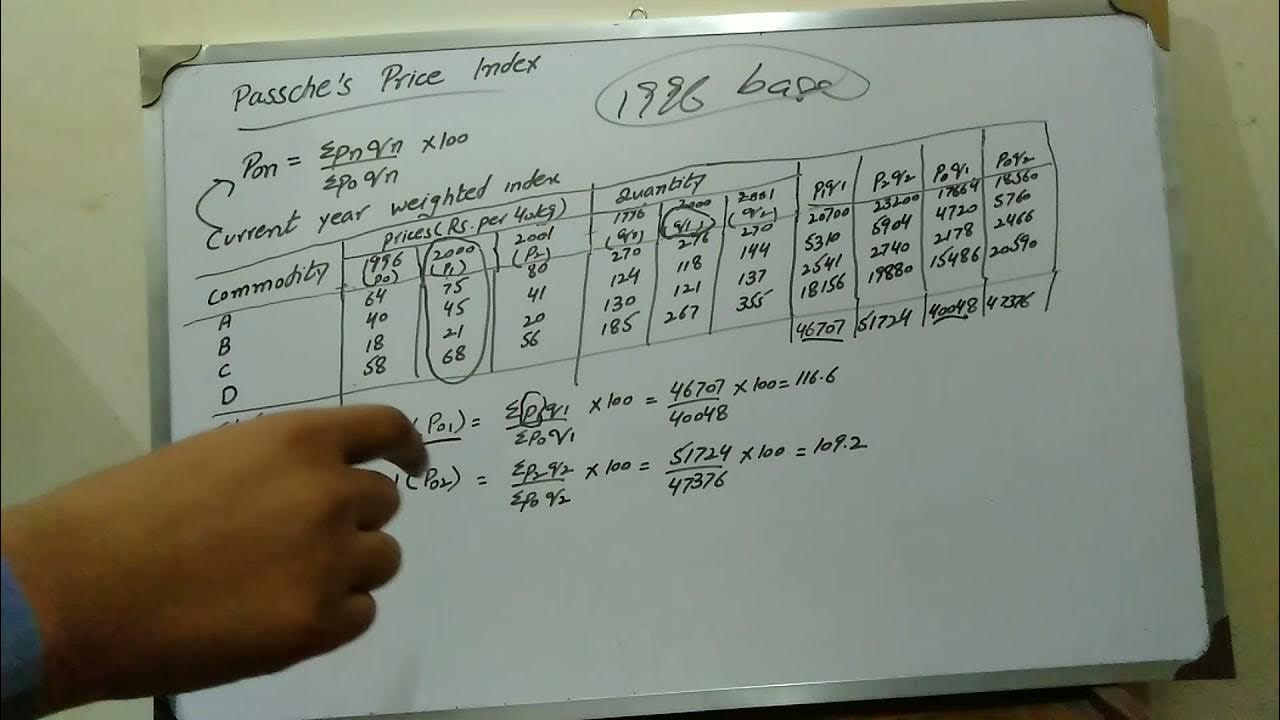 Passche's Price Index
1996 base
Pon = Σpnqn / Σp0qn × 100
Current year weighted index
Commodity | Prices (Rs. per 40kg) | Quantity | P1q1 | P2q2 | P0q1 | P0q2
1996 (P0) | 2000 (P1) | 2001 (P2) | 1996 (q0) | 2000 (q1) | 2001 (q2)
A | 64 | 75 | 80 | 270 | 276 | 270 | 20700 | 23200 | 17664 | 18560
B | 40 | 45 | 41 | 124 | 118 | 144 | 5310 | 5904 | 4720 | 5760
C | 18 | 21 | 20 | 130 | 121 | 137 | 2541 | 2740 | 2178 | 2466
D | 58 | 68 | 56 | 185 | 267 | 355 | 18156 | 19880 | 15486 | 20590
46707 | 51724 | 40048 | 47376
(P01) = Σp1q1 / Σp0q1 × 100 = 46707 / 40048 × 100 = 116.6
(P02) = Σp2q2 / Σp0q2 × 100 = 51724 / 47376 × 100 = 109.2